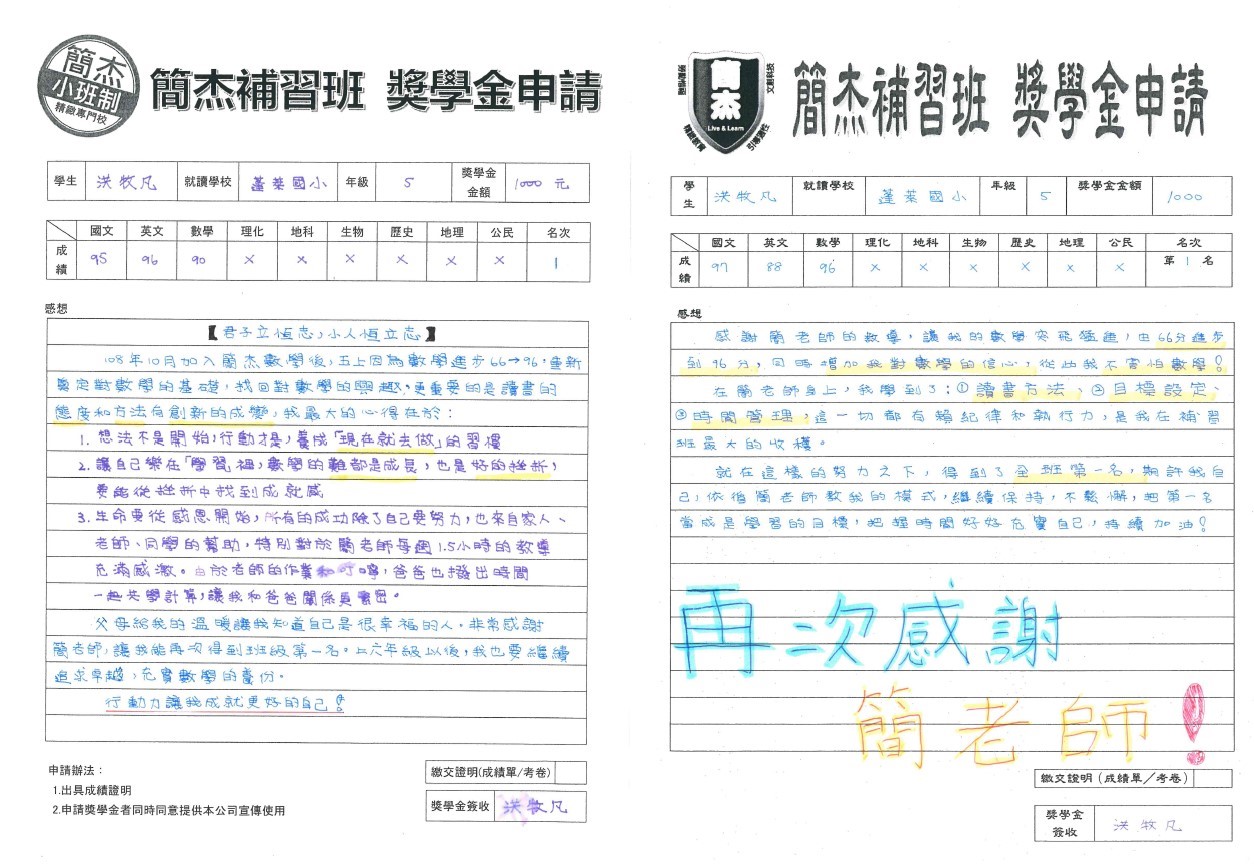 簡杰
小班制
精緻專門校
簡杰補習班 獎學金申請
學生 洪牧凡 就讀學校 蓬萊國小 年級 5 獎學金金額 1000 元
國文 英文 數學 理化 地科 生物 歷史 地理 公民 名次
成績 95 96 90 × × × × × × 1
感想
【君子立恆志,小人恆立志】
108年10月加入簡杰數學後,五上因為數學進步66→96,重新
奠定對數學的基礎,找回對數學的興趣,更重要的是讀書的
態度和方法有創新的成變,我最大的心得在於:
1. 想法不是開始,行動才是,養成「現在就去做」的習慣
2. 讓自己樂在「學習」裡,數學的難都是成長,也是好的挫折,
要能從挫折中找到成就感
3. 生命要從感恩開始,所有的成功除了自己要努力,也來自家人、
老師、同學的幫助,特別對於簡老師每週1.5小時的教導
充滿感激。由於老師的作業和叮嚀,爸爸也撥出時間
一起共學計算,讓我和爸爸關係更緊密。
父母給我的溫暖讓我知道自己是很幸福的人。非常感謝
簡老師,讓我能再次得到班級第一名。上六年級以後,我也要繼續
追求卓越,充實數學的養份。
行動力讓我成就更好的自己!
申請辦法:
1.出具成績證明
2.申請獎學金者同時同意提供本公司宣傳使用
繳交證明(成績單/考卷)
獎學金簽收 洪牧凡
簡杰
Live & Learn
精緻教育
引導適性
文創科技
簡杰補習班 獎學金申請
學生 洪牧凡 就讀學校 蓬萊國小 年級 5 獎學金金額 1000
國文 英文 數學 理化 地科 生物 歷史 地理 公民 名次
成績 97 88 96 × × × × × × 第 1 名
感想
感謝簡老師的教導,讓我的數學突飛猛進,由66分進步
到96分,同時增加我對數學的信心,從此我不害怕數學!
在簡老師身上,我學到了:①讀書方法、②目標設定、
③時間管理,這一切都有賴紀律和執行力,是我在補習
班最大的收穫。
就在這樣的努力之下,得到了全班第一名,期許我自
己,依循簡老師教我的模式,繼續保持,不鬆懈,把第一名
當成是學習的目標,把握時間好好充實自己,持續加油!
再次感謝
簡老師!
繳交證明(成績單/考卷)
獎學金簽收 洪牧凡